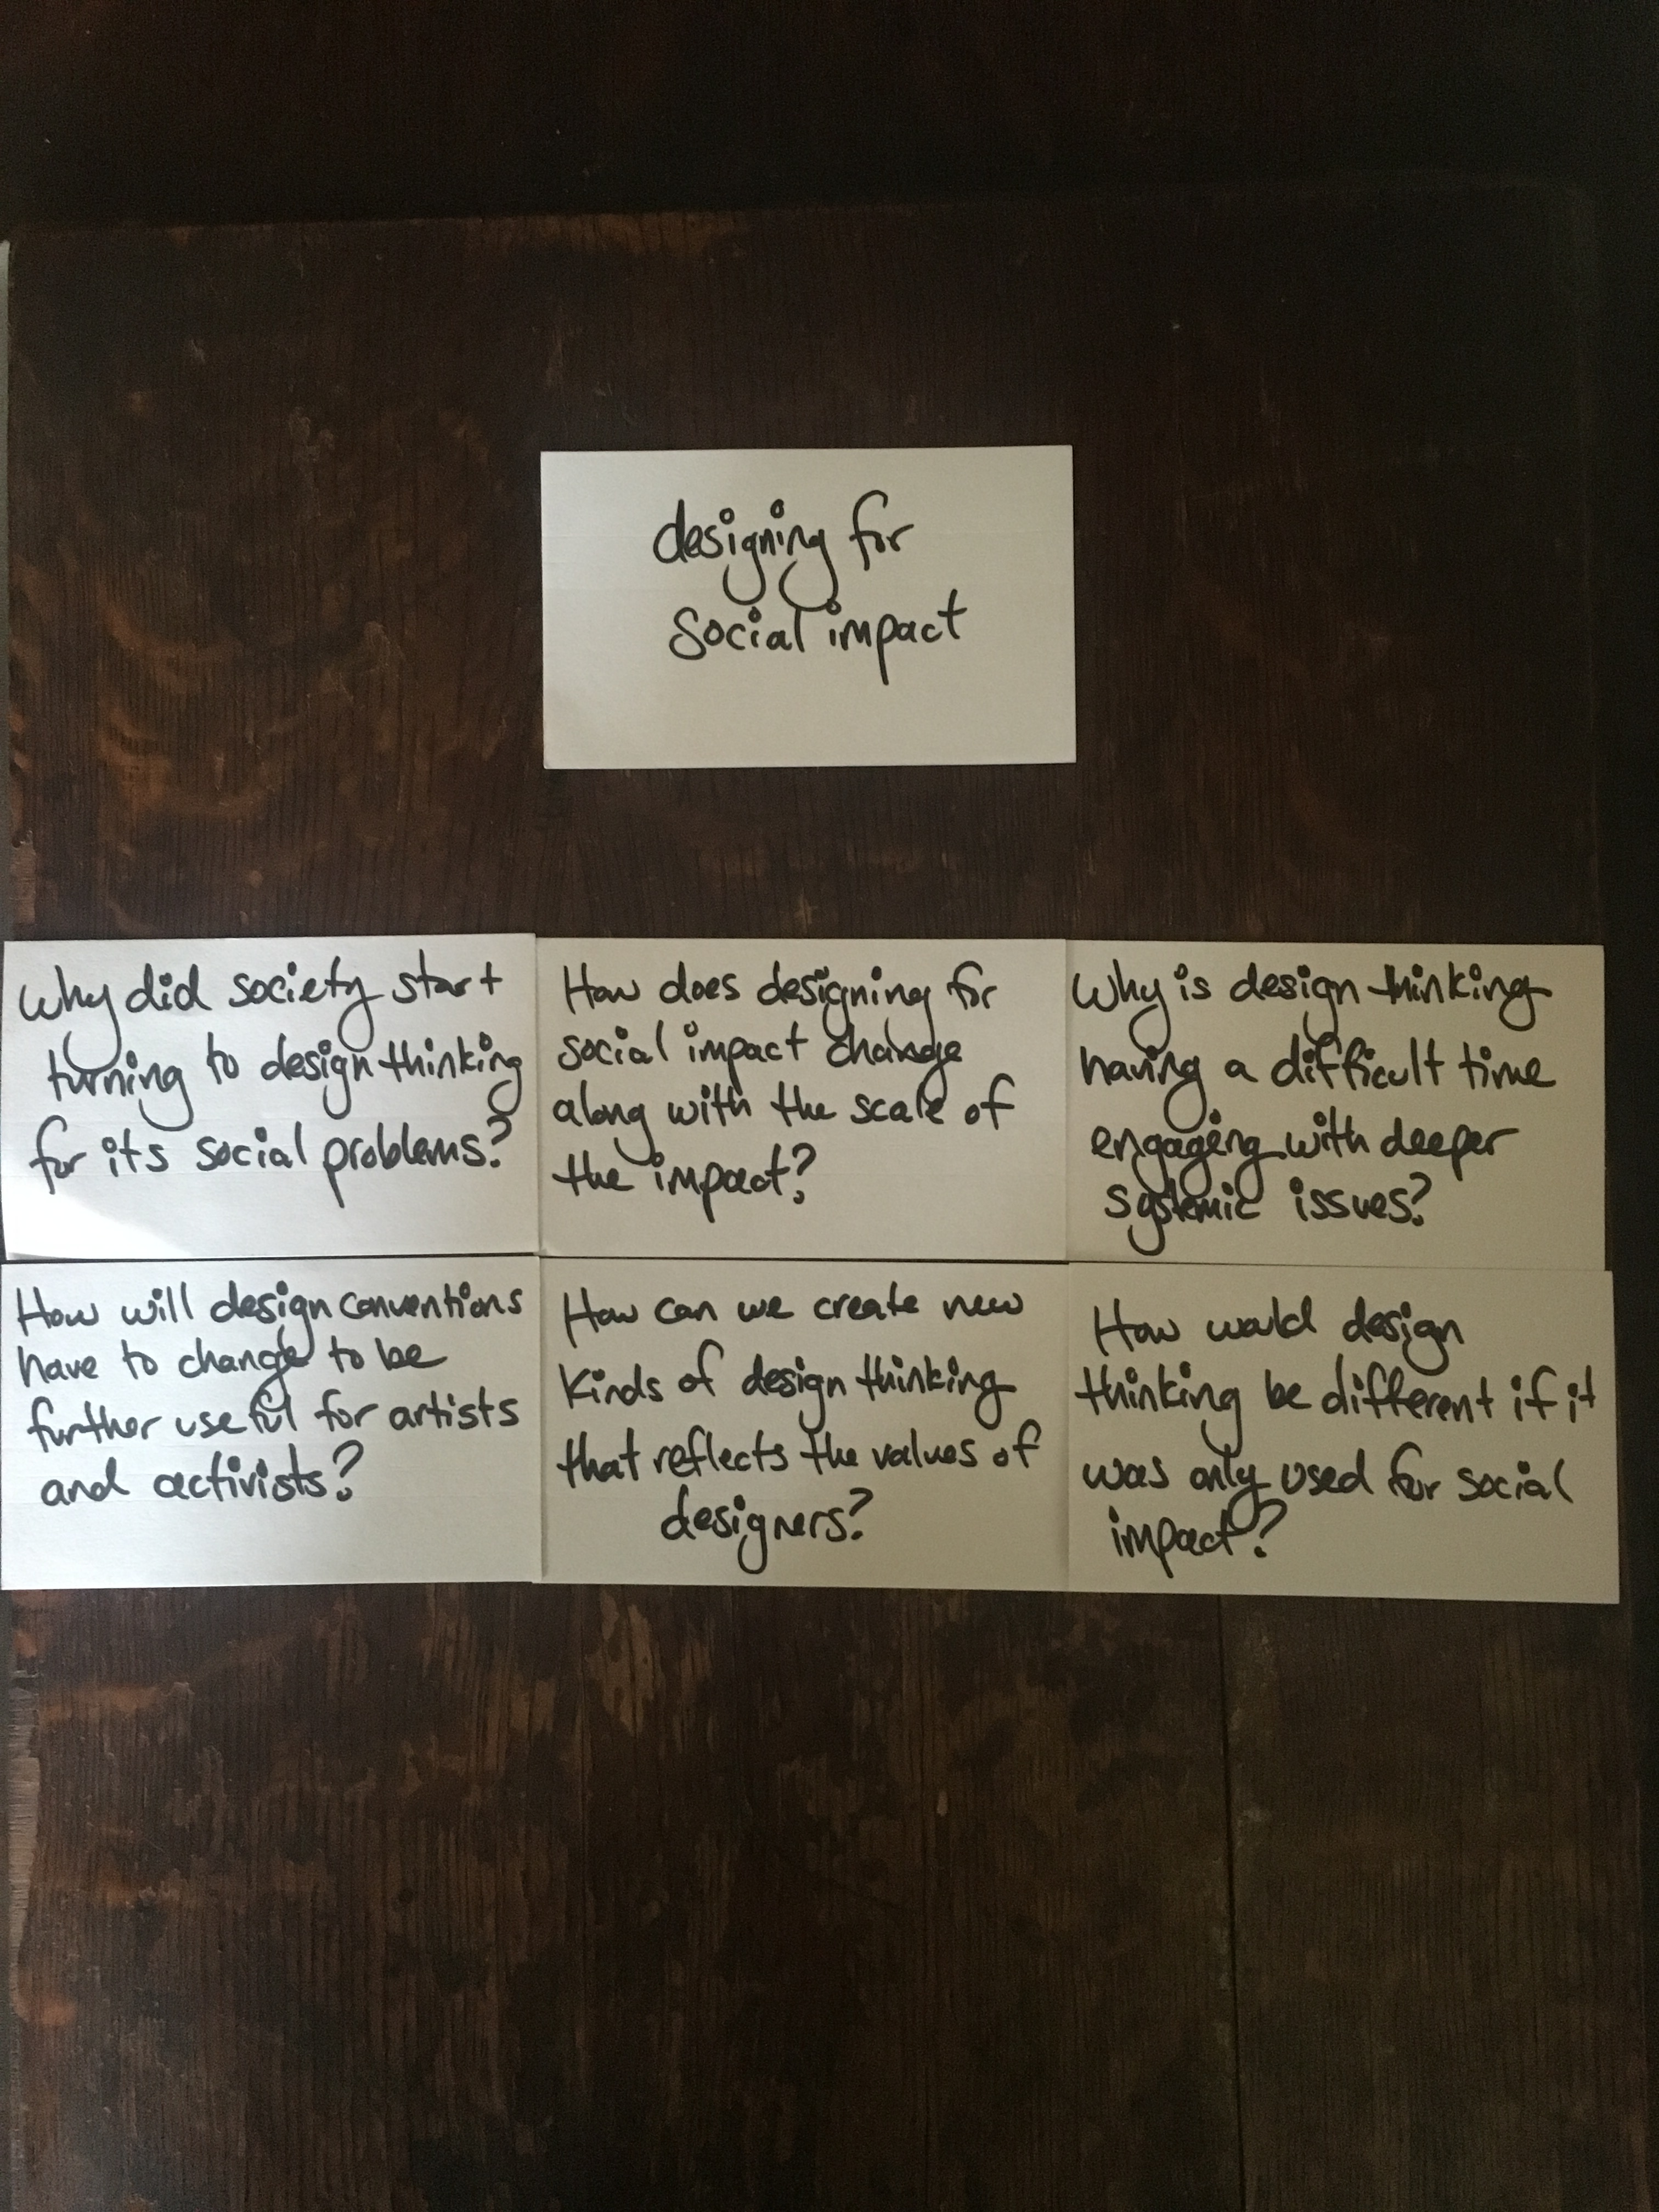 designing for
social impact
Why did society start
turning to design thinking
for its social problems?
How does designing for
social impact change
along with the scale of
the impact?
Why is design thinking
having a difficult time
engaging with deeper
systemic issues?
How will design conventions
have to change to be
further useful for artists
and activists?
How can we create new
kinds of design thinking
that reflects the values of
designers?
How would design
thinking be different if it
was only used for social
impact?